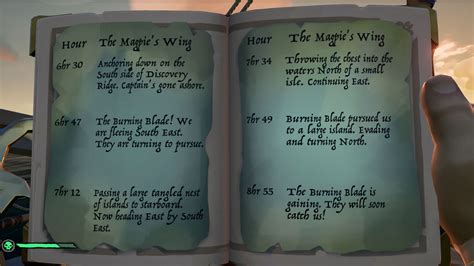 Hour The Magpie's Wing
6hr 30 Anchoring down on the
South side of Discovery
Ridge. Captain's gone ashore.
6hr 47 The Burning Blade! We
are fleeing South East.
They are turning to pursue.
7hr 12 Passing a large tangled nest
of islands to starboard.
Now heading East by South
East.
Hour The Magpie's Wing
7hr 34 Throwing the chest into the
waters North of a small
isle. Continuing East.
7hr 49 Burning Blade pursued us
to a large island. Evading
and turning North.
8hr 55 The Burning Blade is
gaining. They will soon
catch us!